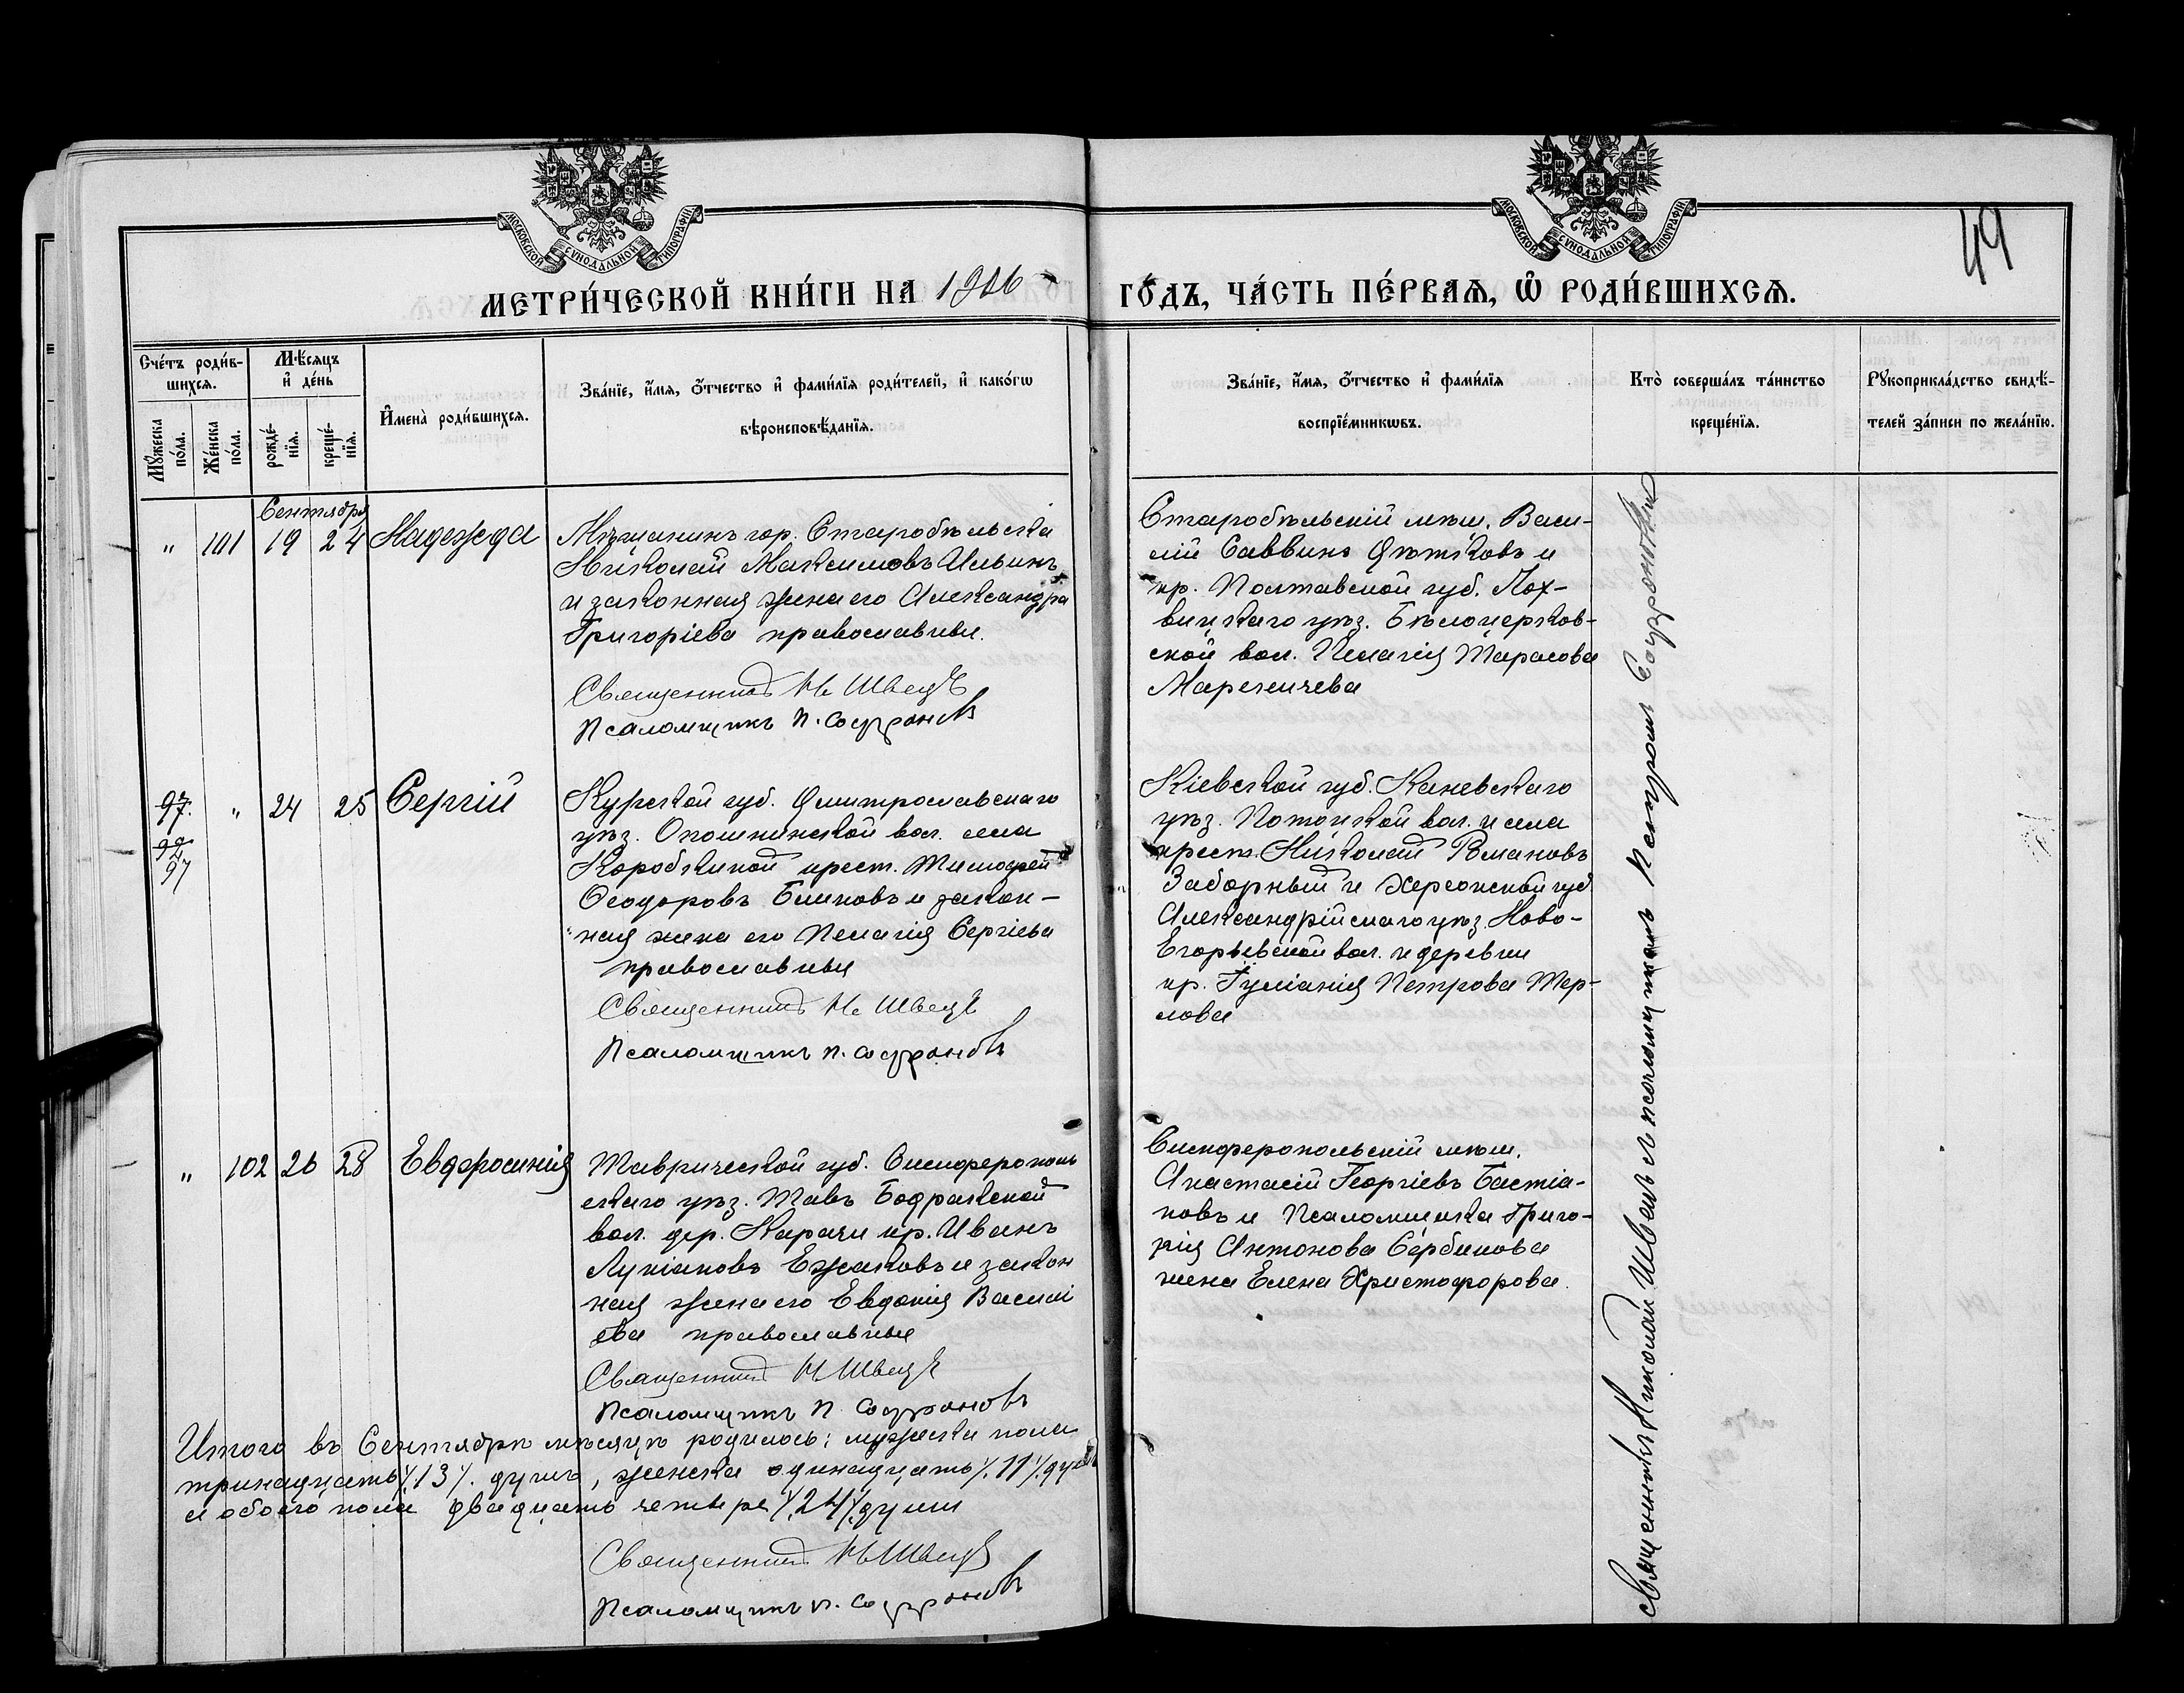 МОСКОВСКОЙ СѴНОДАЛЬНОЙ ТИПОГРАФІИ
МОСКОВСКОЙ СѴНОДАЛЬНОЙ ТИПОГРАФІИ
49
МЕТРИ́ЧЕСКОЙ КНИ́ГИ НА 1906
ГО́ДЪ, ЧА́СТЬ ПЕ́РВАѦ, Ѡ҆ РОДИ́ВШИХСѦ.
Сче́тъ роди́в-
шихсѧ.
Мꙋ́жеска
по́ла.
Же́нска
по́ла.
Мѣ́сѧцъ
и҆ де́нь
рожде́-
нїѧ.
креще́-
нїѧ.
И҆мена̀ роди́вшихсѧ.
Зва́нїе, и҆́мѧ, ѻ҆́тчество и҆ фами́лїѧ роди́телей, и҆ како́гѡ
вѣроисповѣ́данїѧ.
Зва́нїе, и҆́мѧ, ѻ҆́тчество и҆ фами́лїѧ
воспрїе́мникѡвъ.
Кто̀ соверша́лъ та́инство
креще́нїѧ.
Рꙋкоприкла́дство свидѣ́-
телей за́писи по жела́нїю.
Сентября
" 101 19 24 Надежда
Мѣщанинъ гор. Старобѣльска
Николай Максимовъ Ильинъ
и законная жена его Александра
Григоріева православные.
Священникъ Н. Швецъ
Псаломщикъ П. Софроновъ
Старобѣльскій мѣщ. Васи-
лій Саввинъ Цвѣтковъ и
кр. Полтавской губ. Лох-
вицкаго уѣз. Бѣлоцерков-
ской вол. Пелагія Тарасова
97. " 24 25 Сергій
97
Курской губ. Дмитрославскаго
уѣз. вол. села
Коробкиной крест. Тимофей
Ѳеодоровъ Блиновъ и закон-
ная жена его Пелагія Сергіева
православные
Священникъ Н. Швецъ
Псаломщикъ П. Софроновъ
Кіевской губ. Каневскаго
уѣз. Потокской вол. и села
крест. Николай Романовъ
Заборный и Херсонской губ
Александрійскаго уѣз. Ново-
Егорьевской вол. и деревни
кр. Іуліанія Петрова Тер-
лова
" 102 26 28 Евфросинія
Таврической губ. Симферополь
скаго уѣз. Тавъ Бодракской
вол. дер. Карачи кр. Иванъ
Лукіановъ Ежаковъ и закон
ная жена его Евдокія Василі
ева православные
Священникъ Н Швецъ
Псаломщикъ П. Софроновъ
Симферопольскій мѣщ.
Анастасій Георгіевъ Бастіа-
новъ и Псаломщика Григо-
рія Антонова Сербинова
жена Елена Христофорова.
Священникъ Николай Швецъ съ псаломщикомъ Петромъ Софроновымъ
Итого въ Сентябрѣ мѣсяцѣ родилось: мужеска пола
тринадцать /.13/. душъ, женска одинадцать /.11/. душъ
и обоего пола двадцать четыре /.24/. души
Священникъ Н Швецъ
Псаломщикъ П. Софроновъ